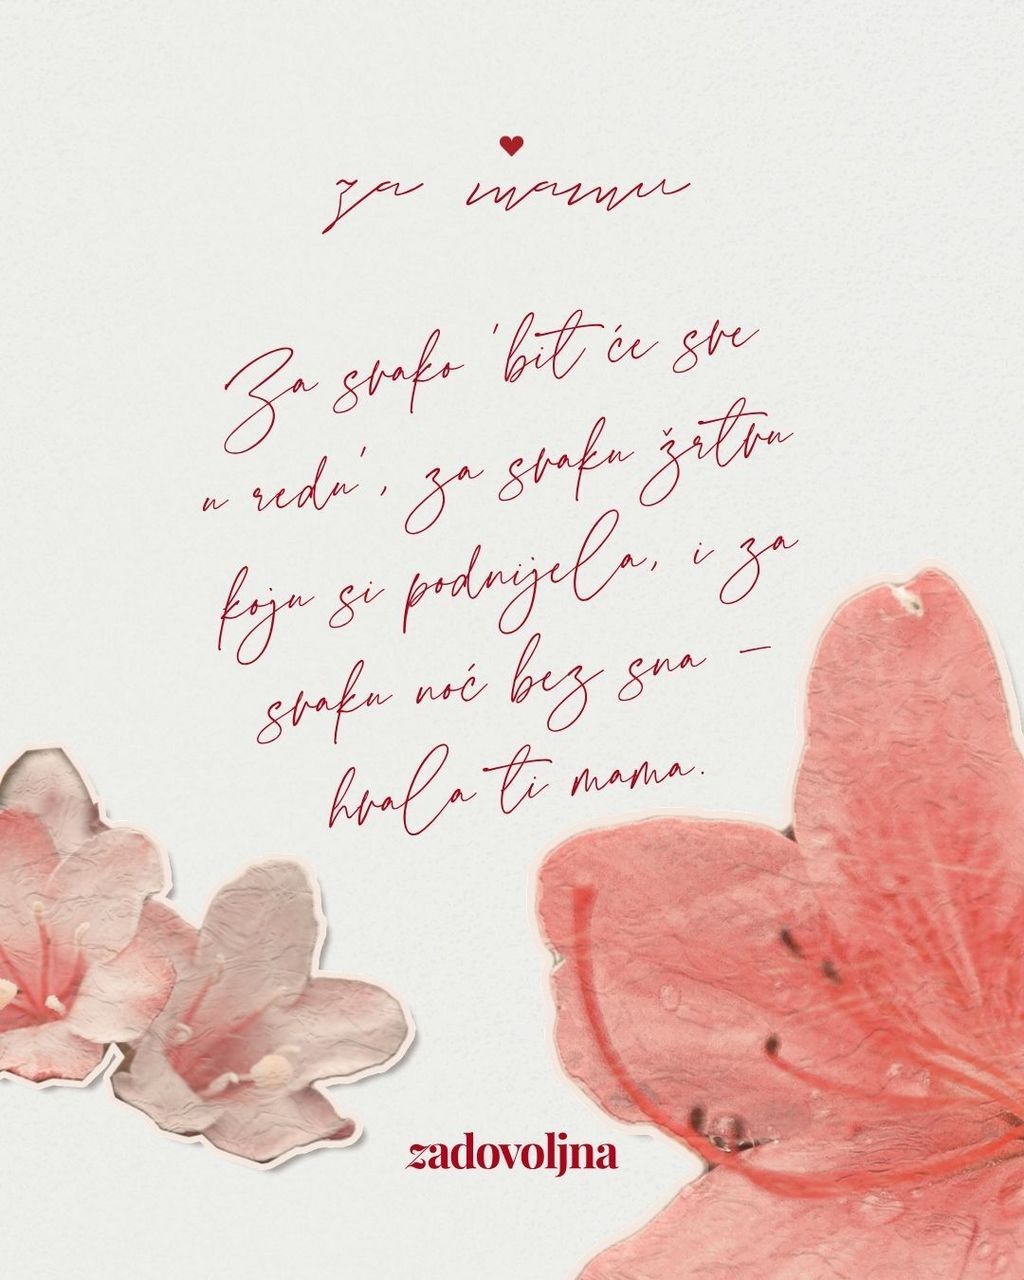 za mamu
Za svako 'bit će sve
u redu', za svaku žrtvu
koju si podnijela, i za
svaku noć bez sna –
hvala ti mama.
zadovoljna